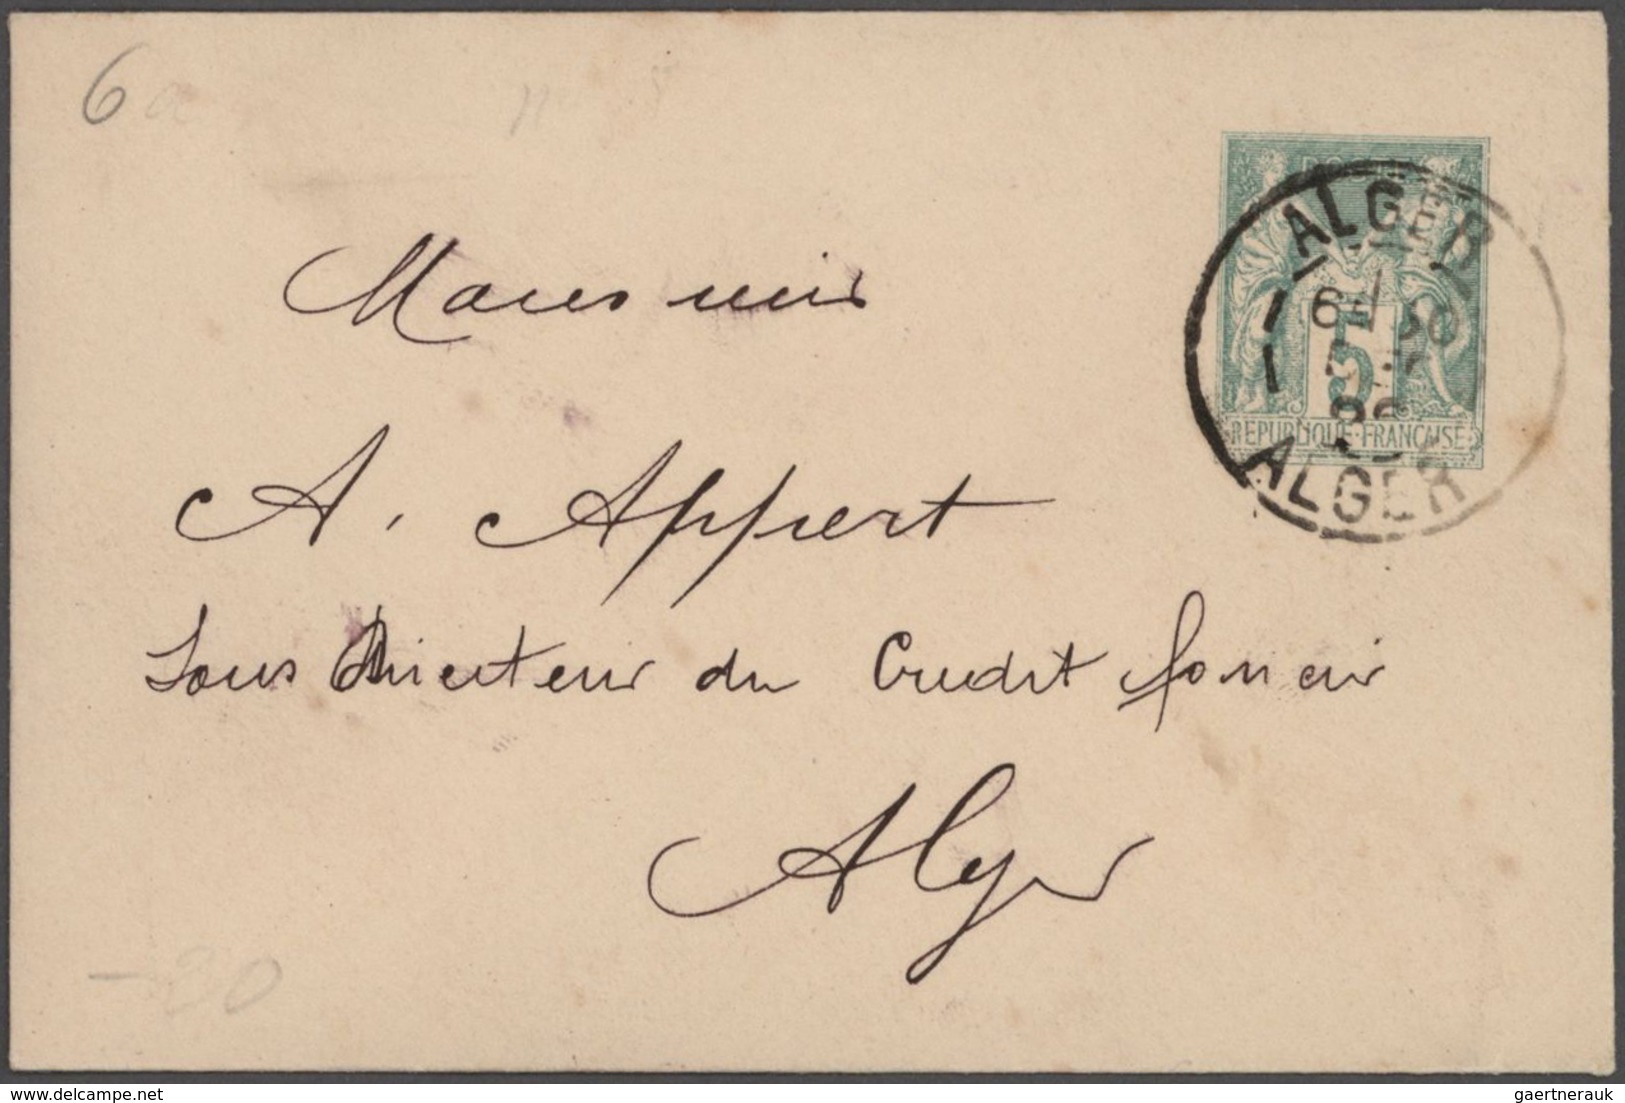 6a
ALGER
5
REPUBLIQUE·FRANCAISE
ALGER
Monsieur
A. Appert
Sous Directeur du Credit foncier
Alger
-30
delcampe.net
gaertnerauk